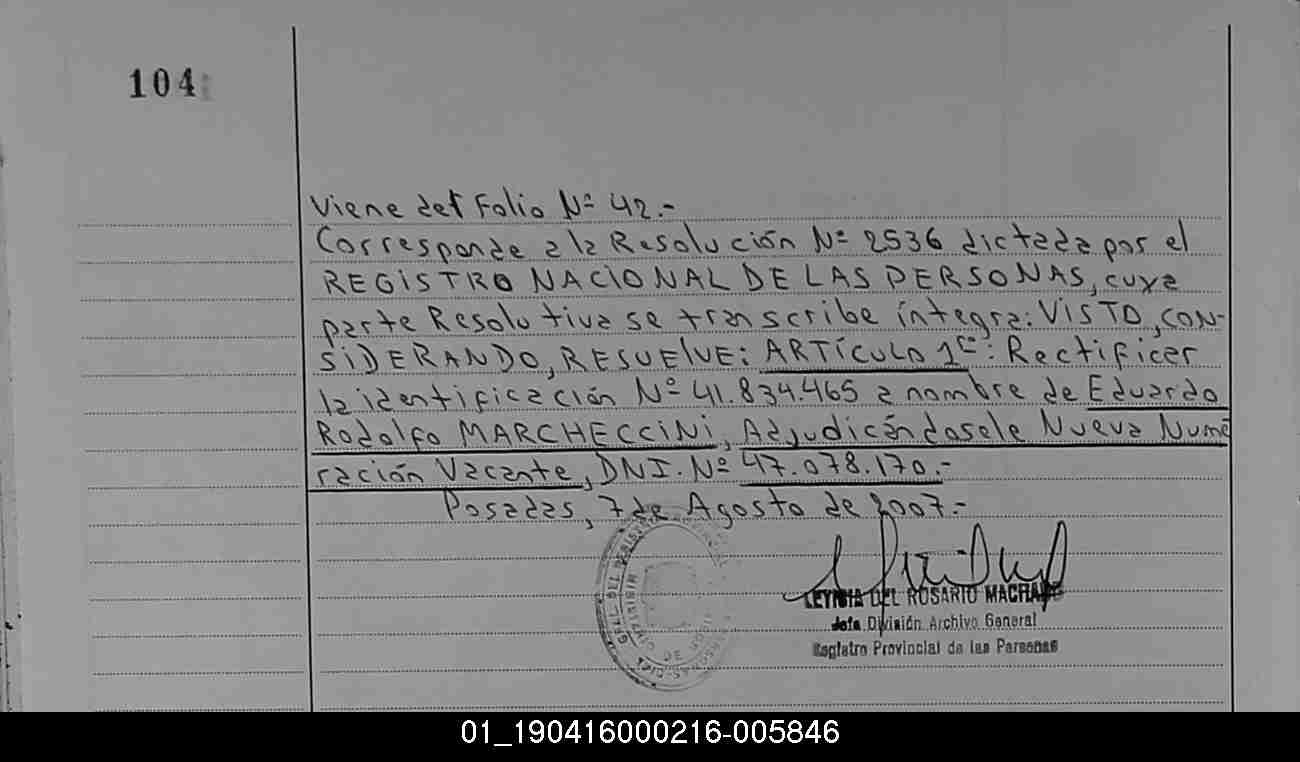 104
Viene del Folio Nº 42.-
Corresponde a la Resolución Nº 2536 dictada por el
REGISTRO NACIONAL DE LAS PERSONAS, cuya
parte Resolutiva se transcribe íntegra: VISTO, CON-
SIDERANDO, RESUELVE: ARTÍCULO 1º: Rectificar
la identificación Nº 41.834.465 a nombre de Eduardo
Rodolfo MARCHECCINI, Adjudicándosele Nueva Nume
ración Vacante, DNI. Nº 47.078.170.-
Posadas, 7 de Agosto de 2007.-
DEL ROSARIO
Jefa División Archivo General
Registro Provincial de las Personas
01_190416000216-005846